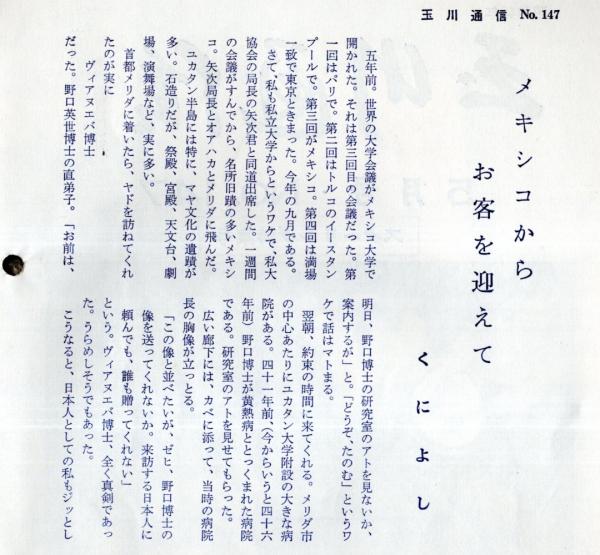 玉川通信 No. 147
メキシコから
お客を迎えて
くによし
五年前。世界の大学会議がメキシコ大学で
開かれた。それは第三回目の会議だった。第
一回はパリで。第二回はトルコのイースタン
プールで。第三回がメキシコ。第四回は満場
一致で東京ときまった。今年の九月である。
さて、私も私立大学からというワケで、私大
協会の局長の矢次君と同道出席した。一週間
の会議がすんでから、名所旧蹟の多いメキシ
コ。矢次局長とオアハカとメリダに飛んだ。
ユカタン半島には特に、マヤ文化の遺蹟が
多い。石造りだが、祭殿、宮殿、天文台、劇
場、演舞場など、実に多い。
首都メリダに着いたら、ヤドを訪ねてくれ
たのが実に
ヴィアヌエバ博士
だった。野口英世博士の直弟子。「お前は、
明日、野口博士の研究室のアトを見ないか、
案内するが」と。「どうぞ、たのむ」というワ
ケで話はマトまる。
翌朝、約束の時間に来てくれる。メリダ市
の中心あたりにユカタン大学附設の大きな病
院がある。四十一年前、(今からいうと四十六
年前)野口博士が黄熱病ととっくまれた病院
である。研究室のアトを見せてもらった。
広い廊下には、カベに添って、当時の病院
長の胸像が立っとる。
「この像と並べたいが、ゼヒ、野口博士の
像を送ってくれないか。来訪する日本人に
頼んでも、誰も贈ってくれない」
という。ヴィアヌエバ博士、全く真剣であっ
た。うらめしそうでもあった。
こうなると、日本人としての私もジッとし